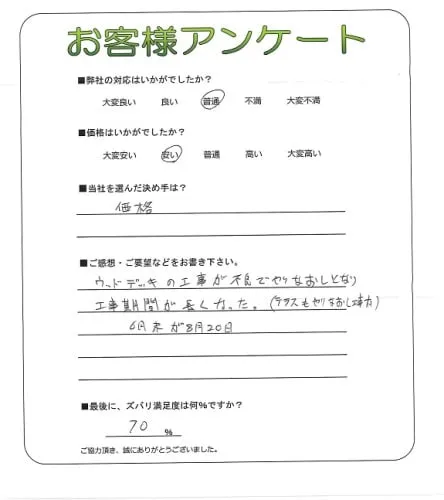 お客様アンケート
■弊社の対応はいかがでしたか？
大変良い 良い 普通 不満 大変不満
■価格はいかがでしたか？
大変安い 安い 普通 高い 大変高い
■当社を選んだ決め手は？
価格
■ご感想・ご要望などをお書き下さい。
ウッドデッキの工事が不良でやりなおしとなり
工事期間が長くなった。(テラスもやりなおし
6月末が8月20日
■最後に、ズバリ満足度は何％ですか？
70 ％
ご協力頂き、誠にありがとうございました。